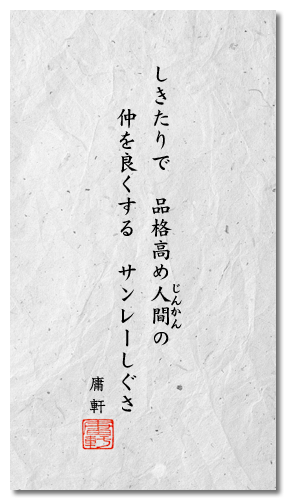 しきたりで　品格高め人間の
じんかん
仲を良くする　サンレーしぐさ
庸軒
庸軒